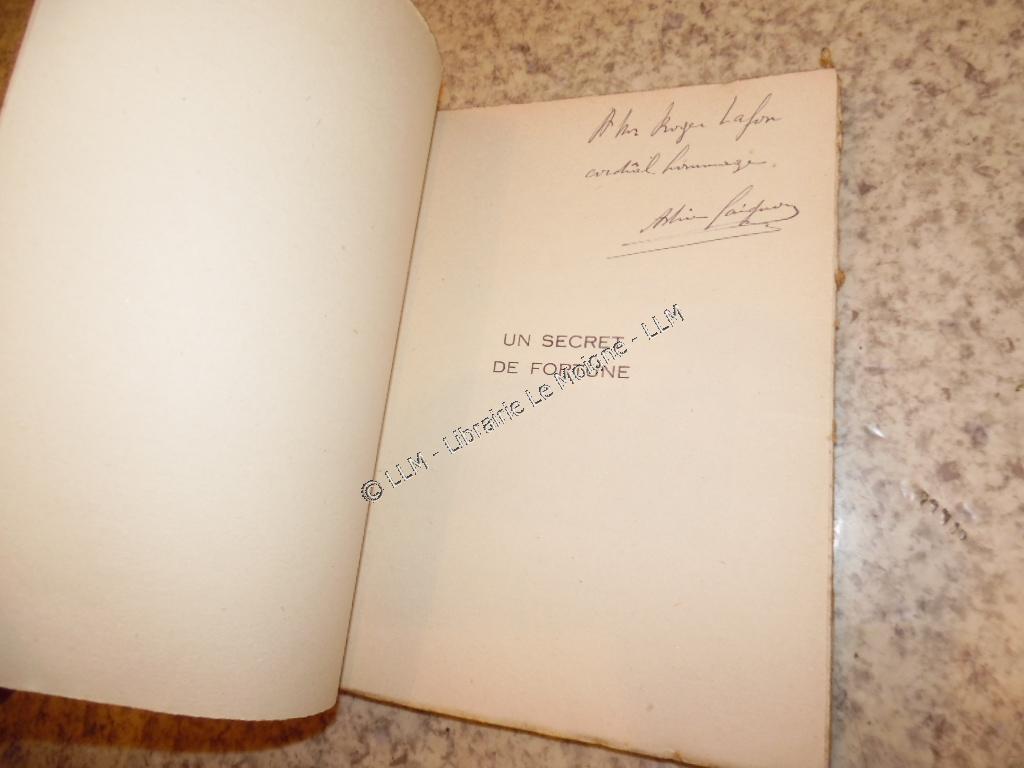 A Mr Roger Lafon
cordial hommage.
UN SECRET
DE FORTUNE
© LLM - Librairie Le Moigne - LLM